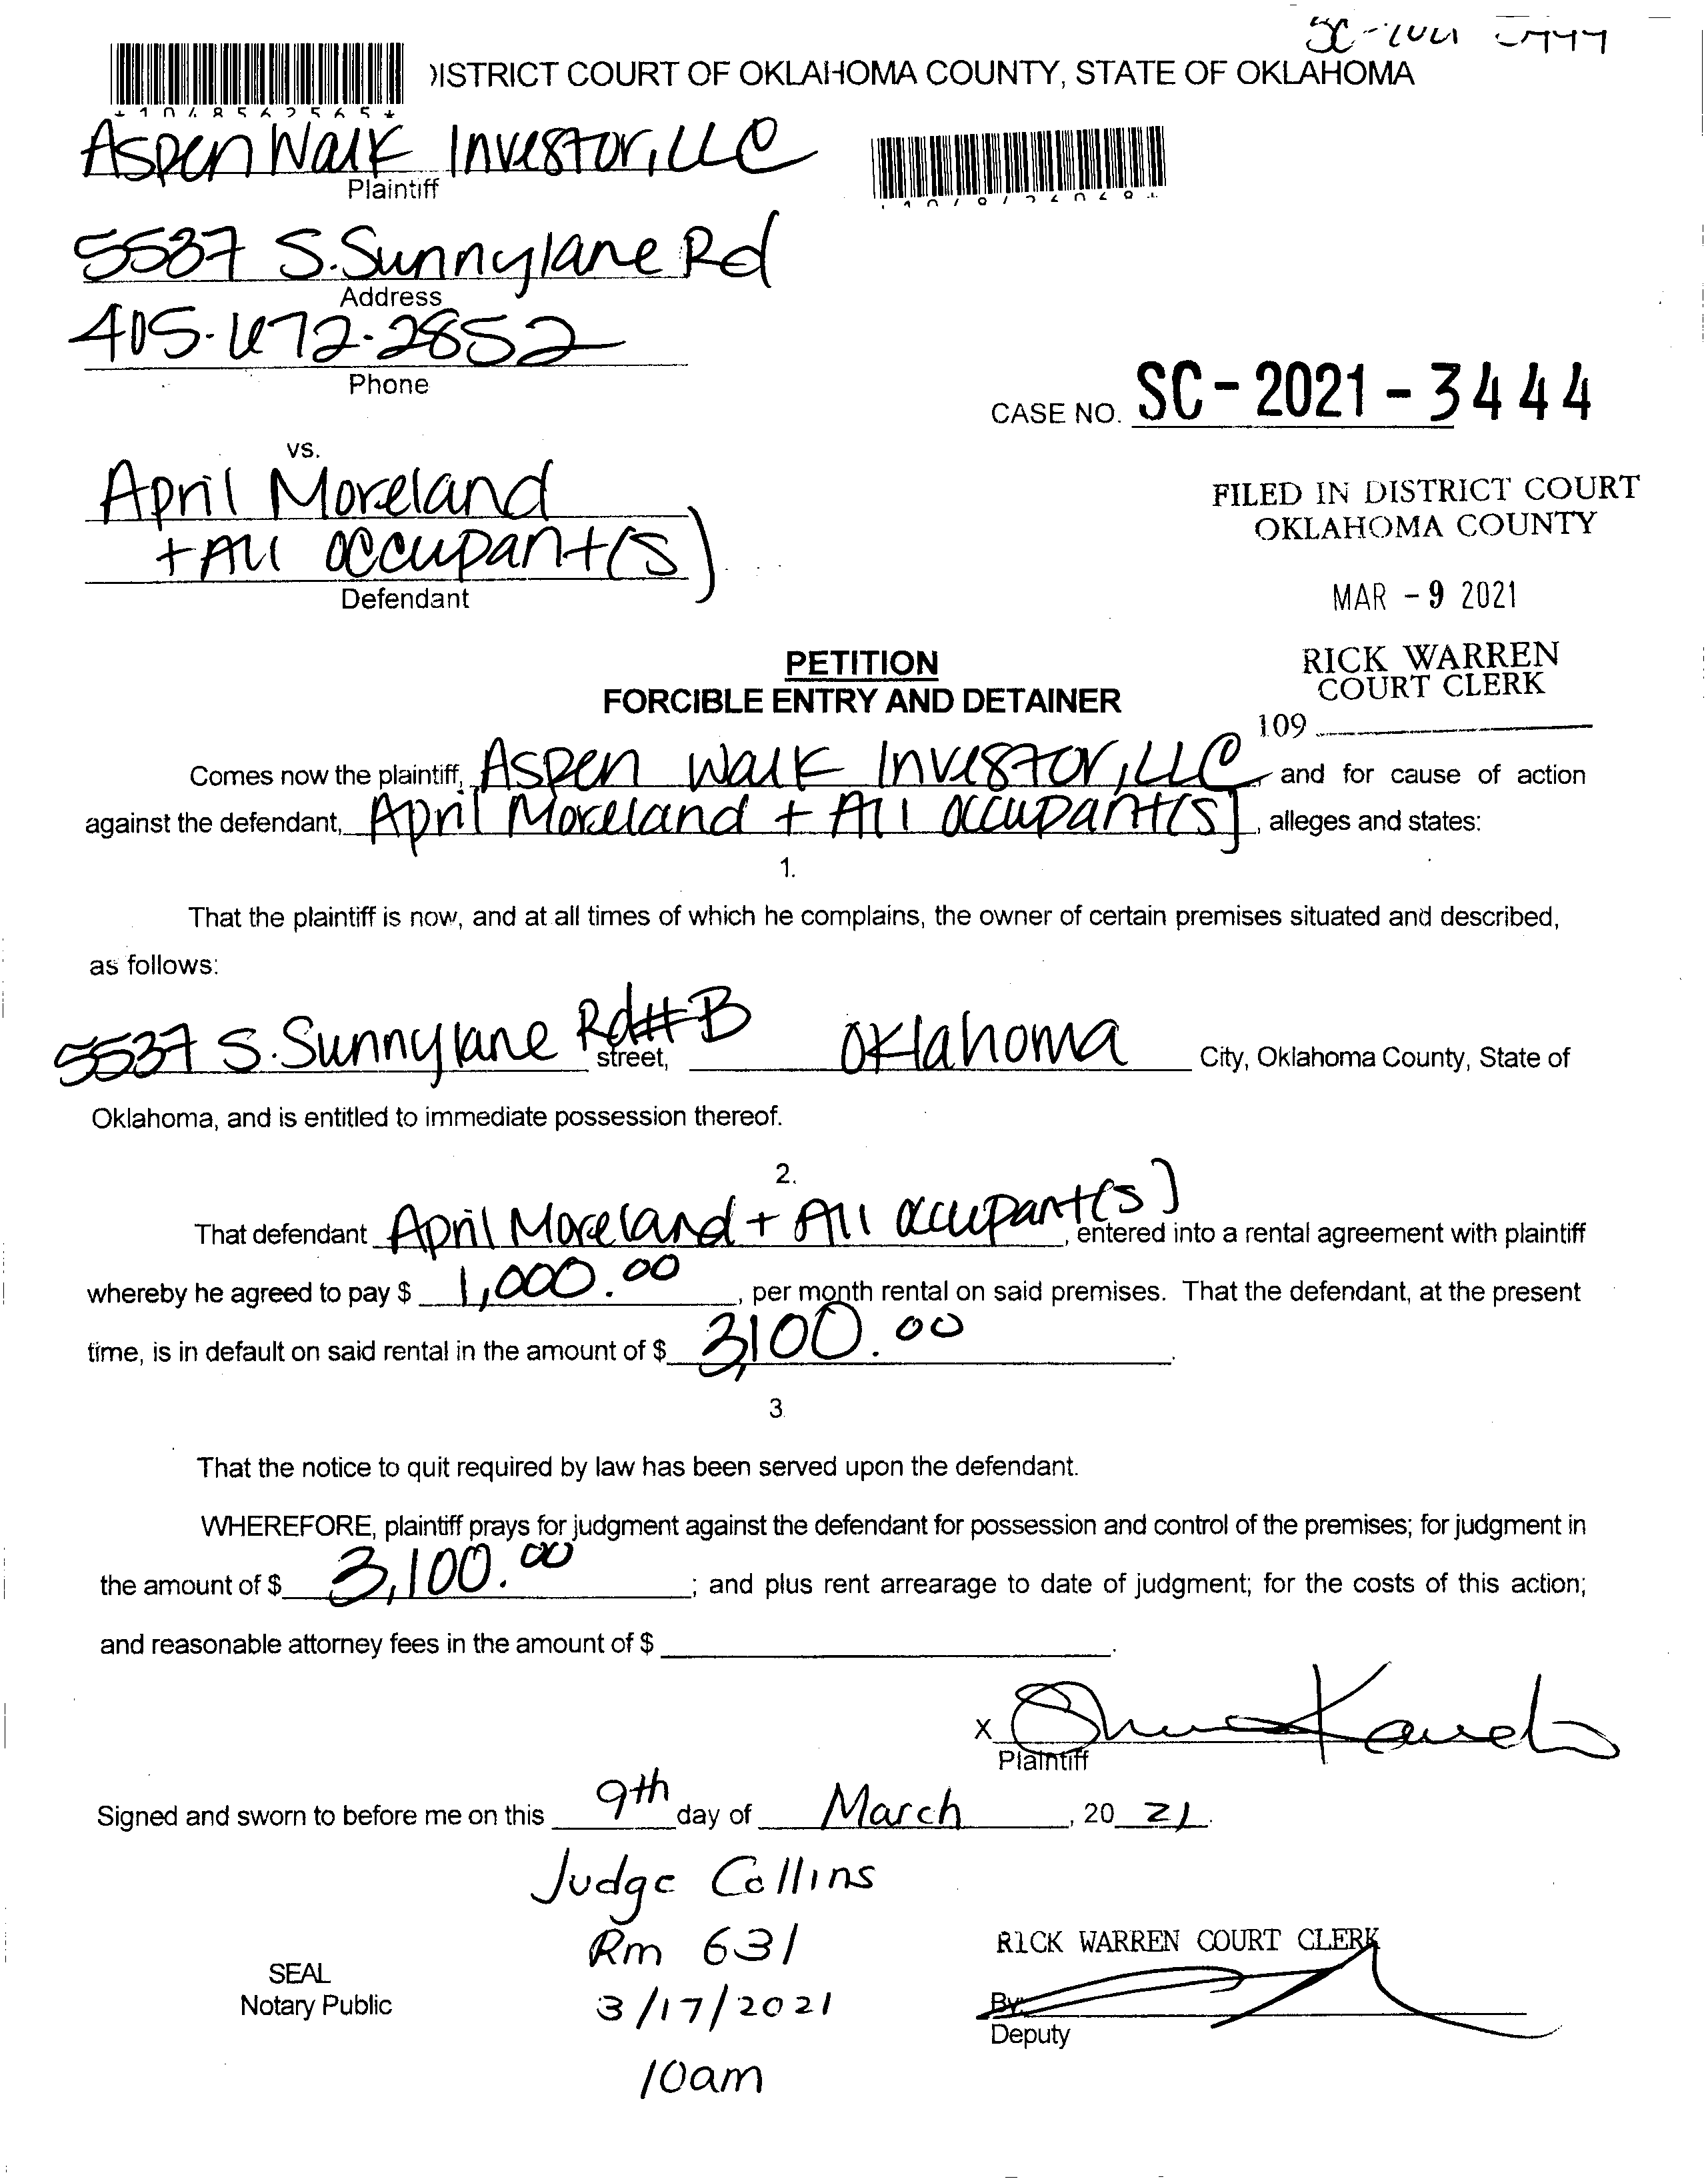 SC-2021
DISTRICT COURT OF OKLAHOMA COUNTY, STATE OF OKLAHOMA
Aspen Walk Investor, LLC
Plaintiff
5537 S. Sunnylane Rd
Address
405-672-2852
Phone
CASE NO. SC-2021-3444
vs.
April Moreland
+ All occupant(s)
Defendant
FILED IN DISTRICT COURT
OKLAHOMA COUNTY
MAR -9 2021
RICK WARREN
COURT CLERK
109
PETITION
FORCIBLE ENTRY AND DETAINER
Comes now the plaintiff, Aspen Walk Investor, LLC, and for cause of action
against the defendant, April Moreland + All occupant(s), alleges and states:
1.
That the plaintiff is now, and at all times of which he complains, the owner of certain premises situated and described,
as follows:
5537 S. Sunnylane Rd #B street, Oklahoma City, Oklahoma County, State of
Oklahoma, and is entitled to immediate possession thereof.
2.
That defendant April Moreland + All occupant(s), entered into a rental agreement with plaintiff
whereby he agreed to pay $ 1,000.00, per month rental on said premises. That the defendant, at the present
time, is in default on said rental in the amount of $ 3,100.00.
3
That the notice to quit required by law has been served upon the defendant.
WHEREFORE, plaintiff prays for judgment against the defendant for possession and control of the premises; for judgment in
the amount of $ 3,100.00; and plus rent arrearage to date of judgment; for the costs of this action;
and reasonable attorney fees in the amount of $ .
X
Plaintiff
Signed and sworn to before me on this 9th day of March, 20 21.
Judge Collins
Rm 631
3/17/2021
10am
SEAL
Notary Public
RICK WARREN COURT CLERK
By:
Deputy